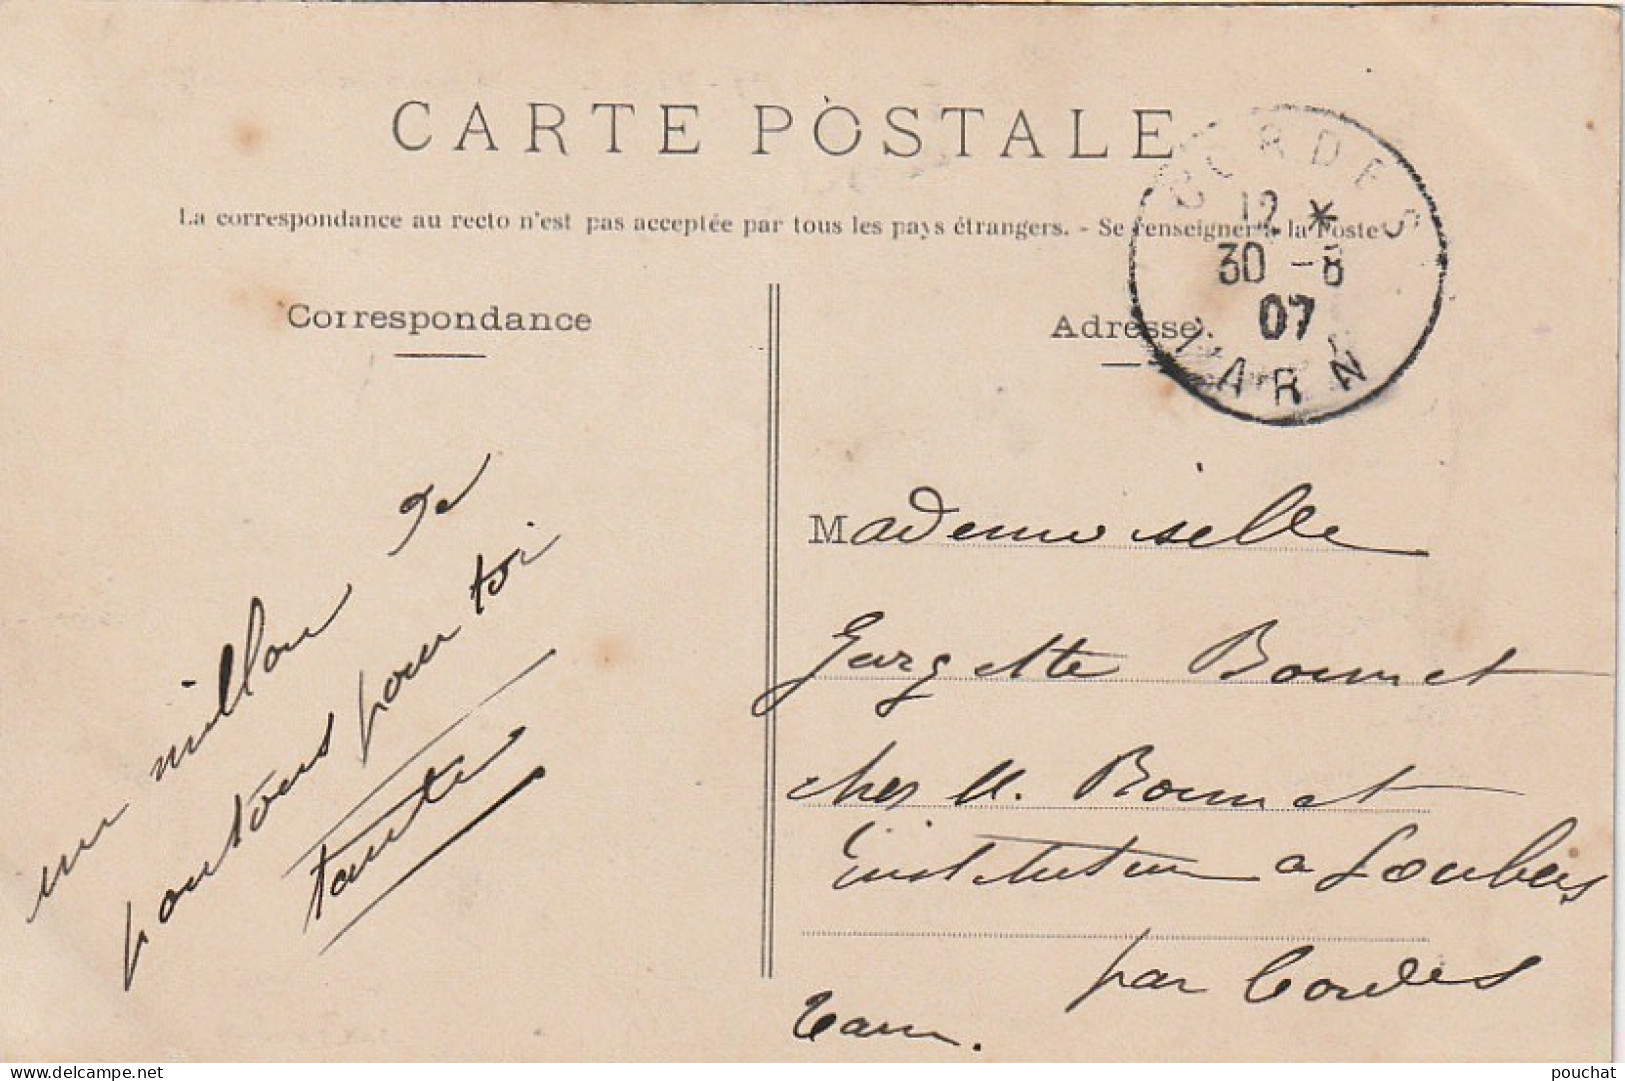 CARTE POSTALE
La correspondance au recto n'est pas acceptée par tous les pays étrangers. - Se renseigner à la Poste
Correspondance
Adresse.
CORDES
12 *
30 -8
07
TARN
un millon de
poutous pour toi
tante
Mademoiselle
Gorgette Bonnet
chez M. Bonnet
instituteur a Loubers
par Cordes
Tarn.
www.delcampe.net
pouchat